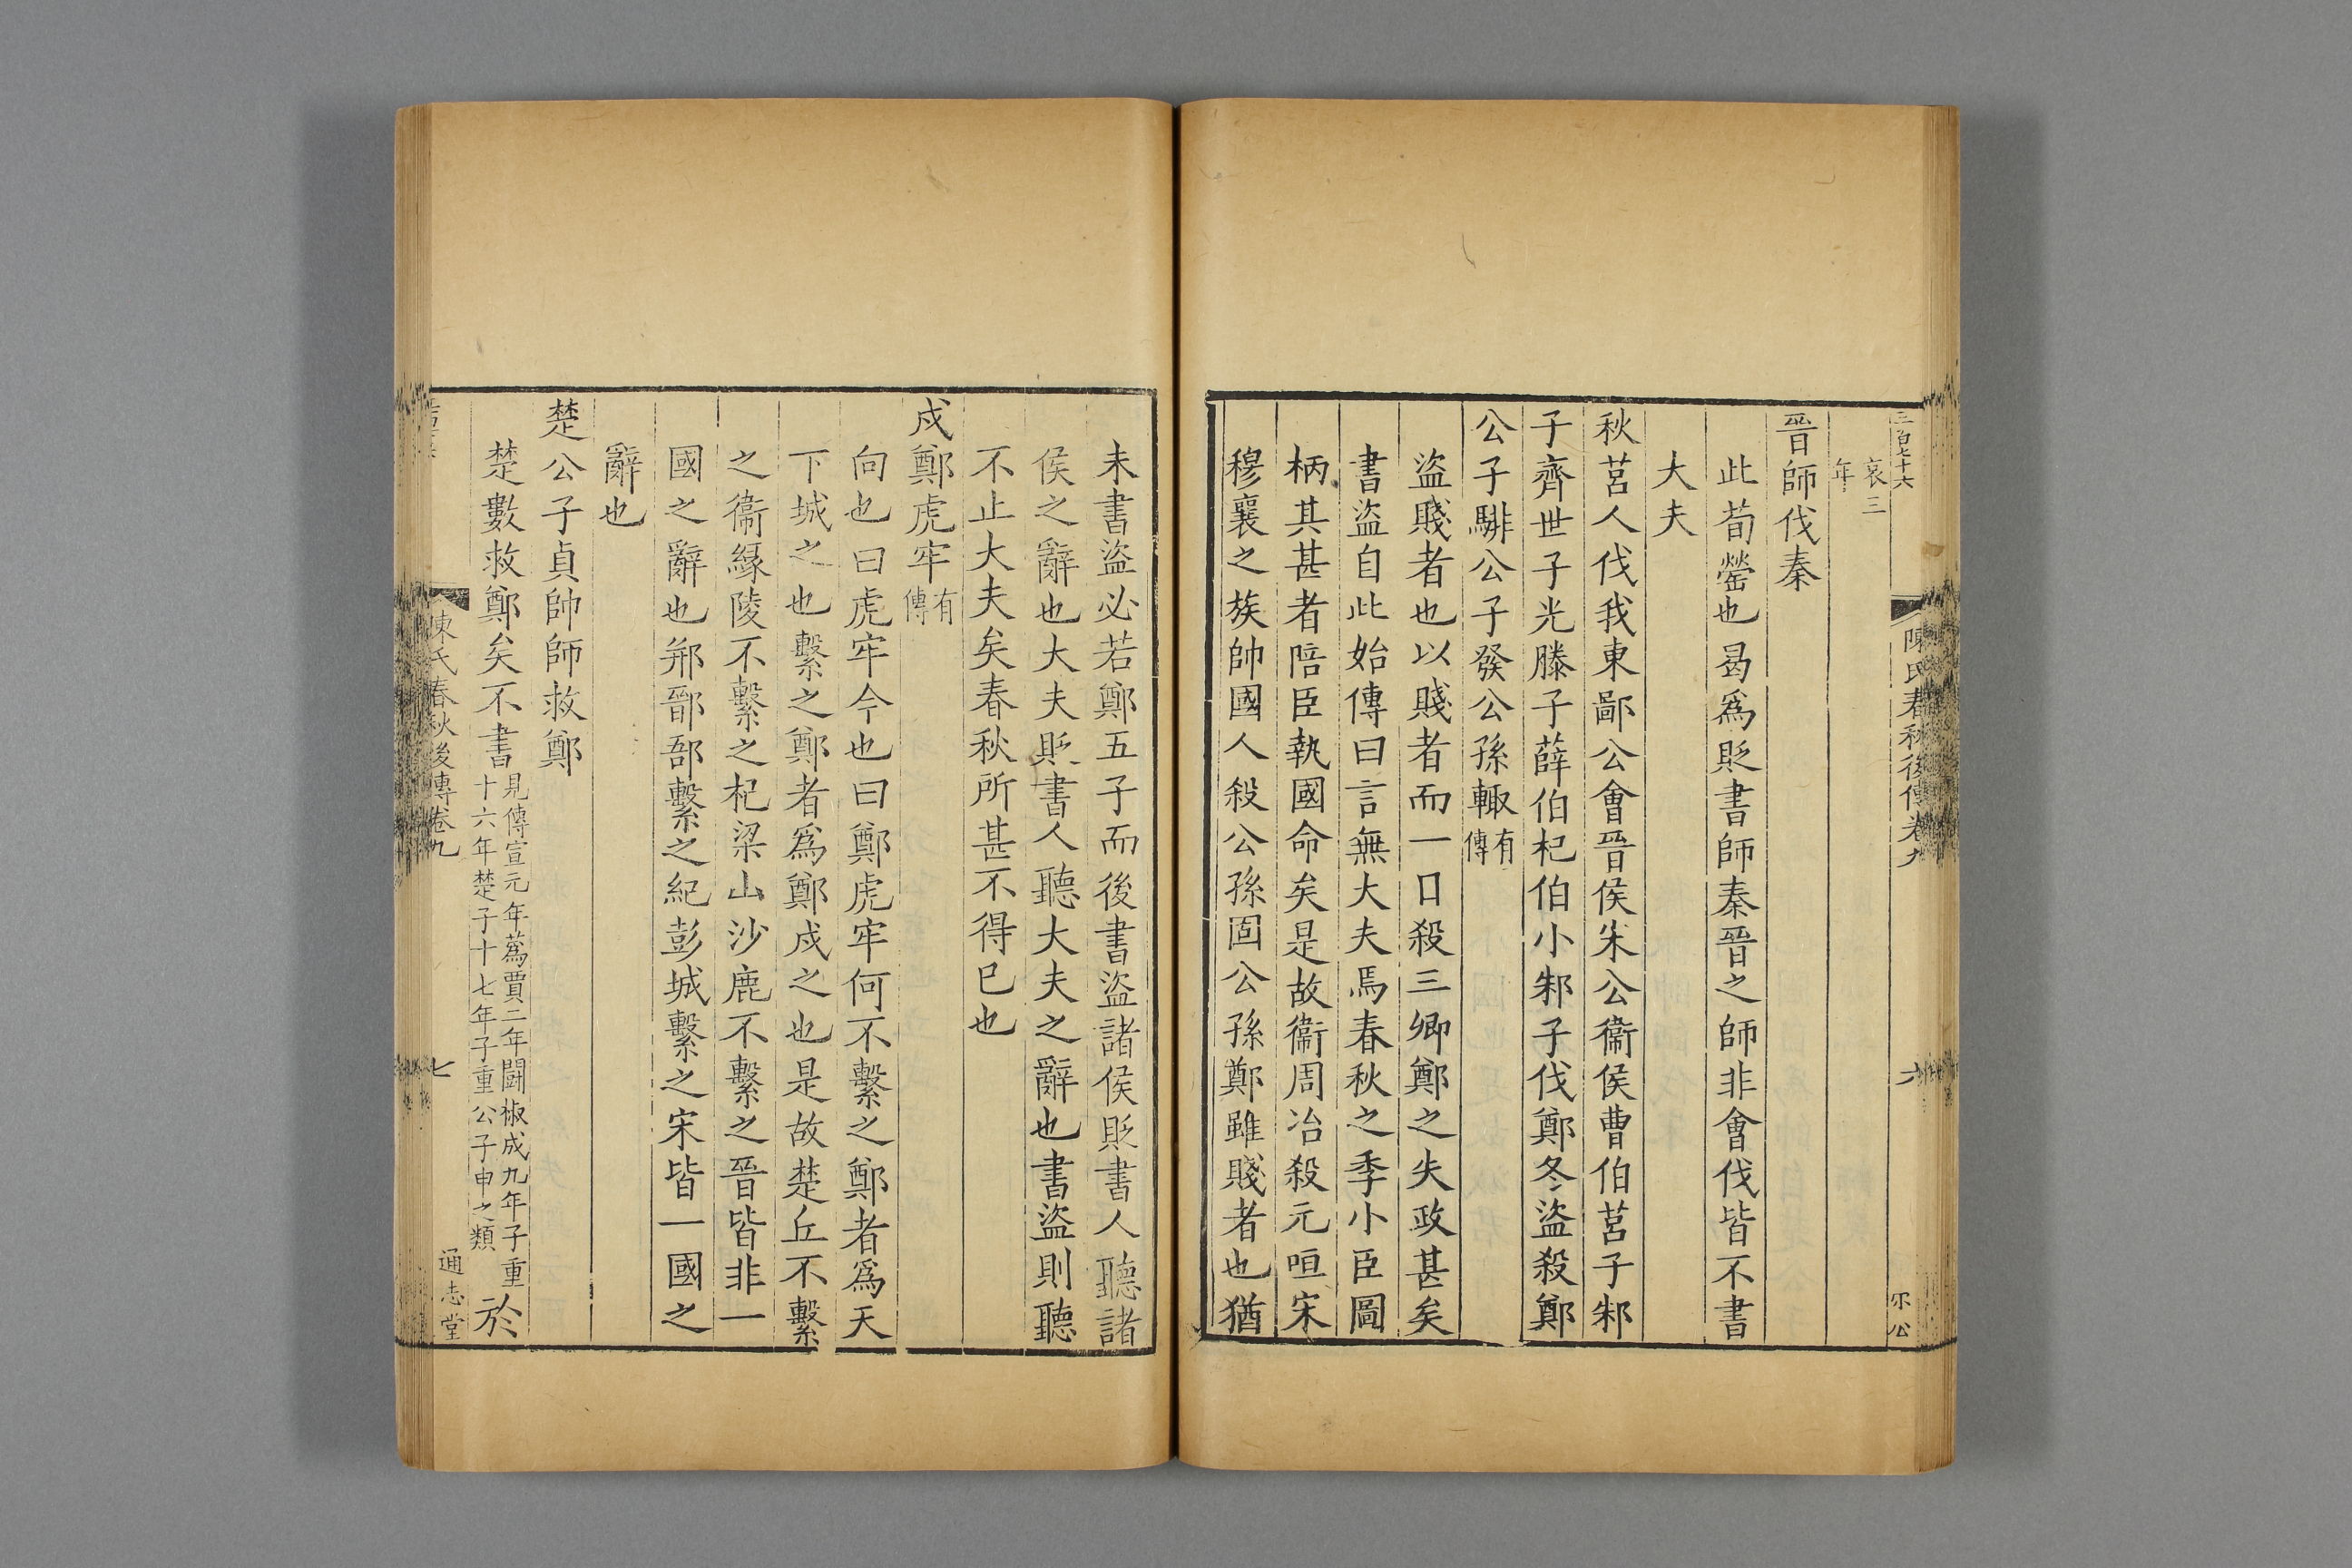 三百七十六
陳氏春秋後傳卷九
六
哀三
年
晉師伐秦
此荀罃也曷爲貶書師秦晉之師非會伐皆不書
大夫
秋莒人伐我東鄙公會晉侯宋公衞侯曹伯莒子邾
子齊世子光滕子薛伯杞伯小邾子伐鄭冬盜殺鄭
公子騑公子發公孫輒有傳
盜賤者也以賤者而一日殺三卿鄭之失政甚矣
書盜自此始傳曰言無大夫焉春秋之季小臣圖
柄其甚者陪臣執國命矣是故衞周冶殺元咺宋
穆襄之族帥國人殺公孫固公孫鄭雖賤者也猶
未書盜必若鄭五子而後書盜諸侯貶書人聽諸
侯之辭也大夫貶書人聽大夫之辭也書盜則聽
不止大夫矣春秋所甚不得已也
戍鄭虎牢有傳
向也曰虎牢今也曰鄭虎牢何不繫之鄭者爲天
下城之也繫之鄭者爲鄭戍之也是故楚丘不繫
之衞緣陵不繫之杞梁山沙鹿不繫之晉皆非一
國之辭也郱鄑郚繫之紀彭城繫之宋皆一國之
辭也
楚公子貞帥師救鄭
楚數救鄭矣不書見傳宣元年蒍賈二年鬪椒成九年子重十六年楚子十七年子重公子申之類於
陳氏春秋後傳卷九
七
通志堂